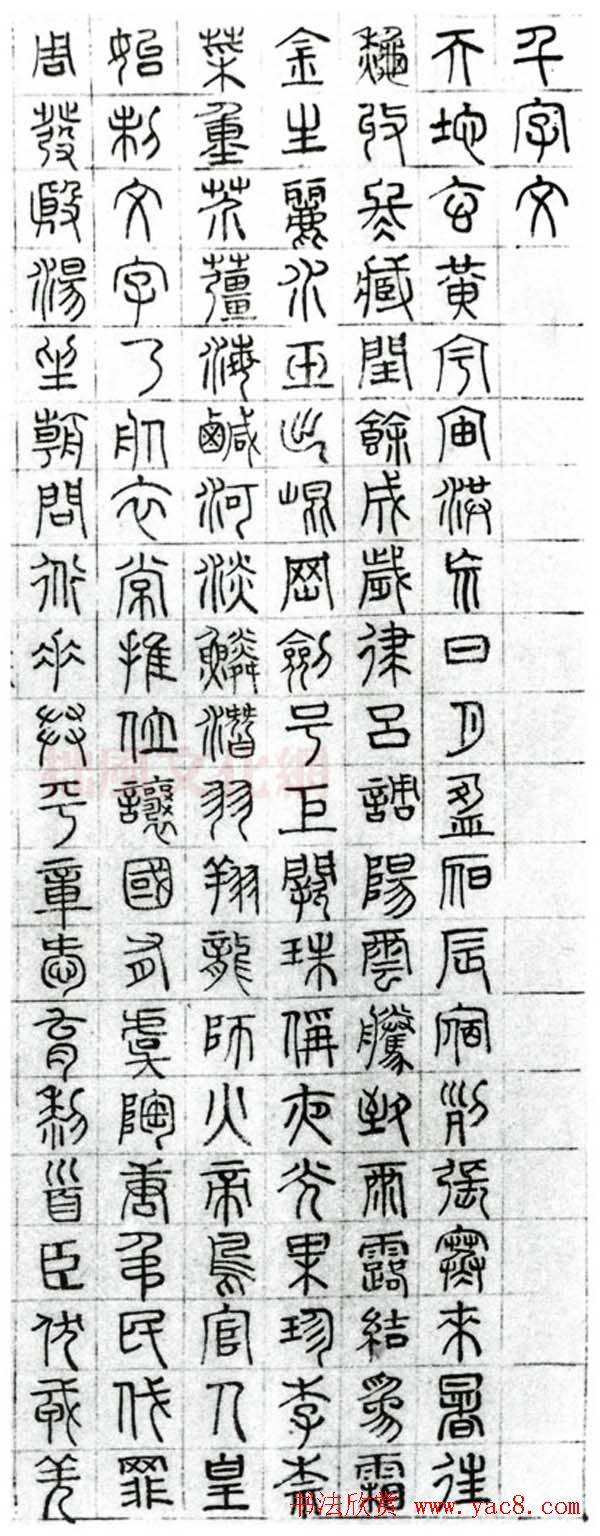 千字文
天地玄黃宇宙洪荒日月盈昃辰宿列張寒來暑往
秋收冬藏閏餘成歲律呂調陽雲騰致雨露結為霜
金生麗水玉出崐岡劍号巨闕珠稱夜光果珍李柰
菜重芥薑海鹹河淡鱗潛羽翔龍師火帝鳥官人皇
始制文字乃服衣常推位讓國有虞陶唐弔民伐罪
周發殷湯坐朝問道垂拱平章愛育黎首臣伏戎羌
书法欣赏 www.yac8.com